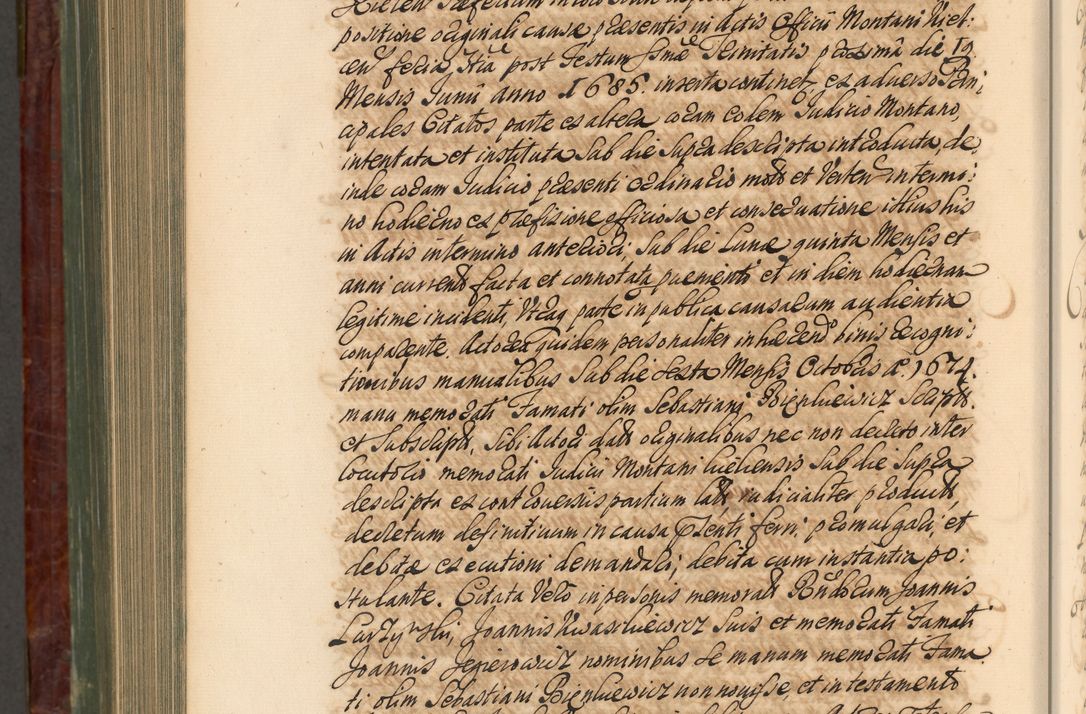 positione originali causæ præsentis in Actis Officii Montani Kiel:
cen͠ feria, 3tia post Festum Smæ Trinitatis proxima die 19
Mensis Junii anno 1685. inserta continet, ex adverso Prin;
cipales Citatos parte ex altera coram eodem Judicio Montano,
intentata et instituta sub die supra descripta introducta, de,
inde coram Judicio præsenti ordinario moto et verten͠ in termi:
no hodierno ex præfixione officiosa et conservatione illius his
in Actis in termino anteriori, sub die Lunæ quinta Mensis et
anni currenti facta et connotata praementi et in diem hodiernam
legitime incidenti, Utraq parte in publica causarum audientia
comparente. Actorea quidem personaliter inhærendo binis recogni:
tionibus manualibus sub die sexta Mensis Octobris A. 1674.
manu memorati Famati olim Sebastiani Bienkiewicz scriptis.
et subscriptis, sibi Actori datis originalibus nec non decreto inter
locutorio memorati Judicii Montani Kielcensis sub die supra
descripta ex controversiis partium lato, iudicialiter productis,
decretum definitivum in causa præsenti ferri, promulgari, et
debitæ executioni demandari, debita cum instantia po:
stulante. Citata Vero in personis memorati Rndorum Joannis
Joannis Kwasniewicz suis et memorati Famati
Joannis Jezierowicz nominibus se manum memorati Fama
ti olim Sebastiani Bienkiewicz non novisse, et in testamento